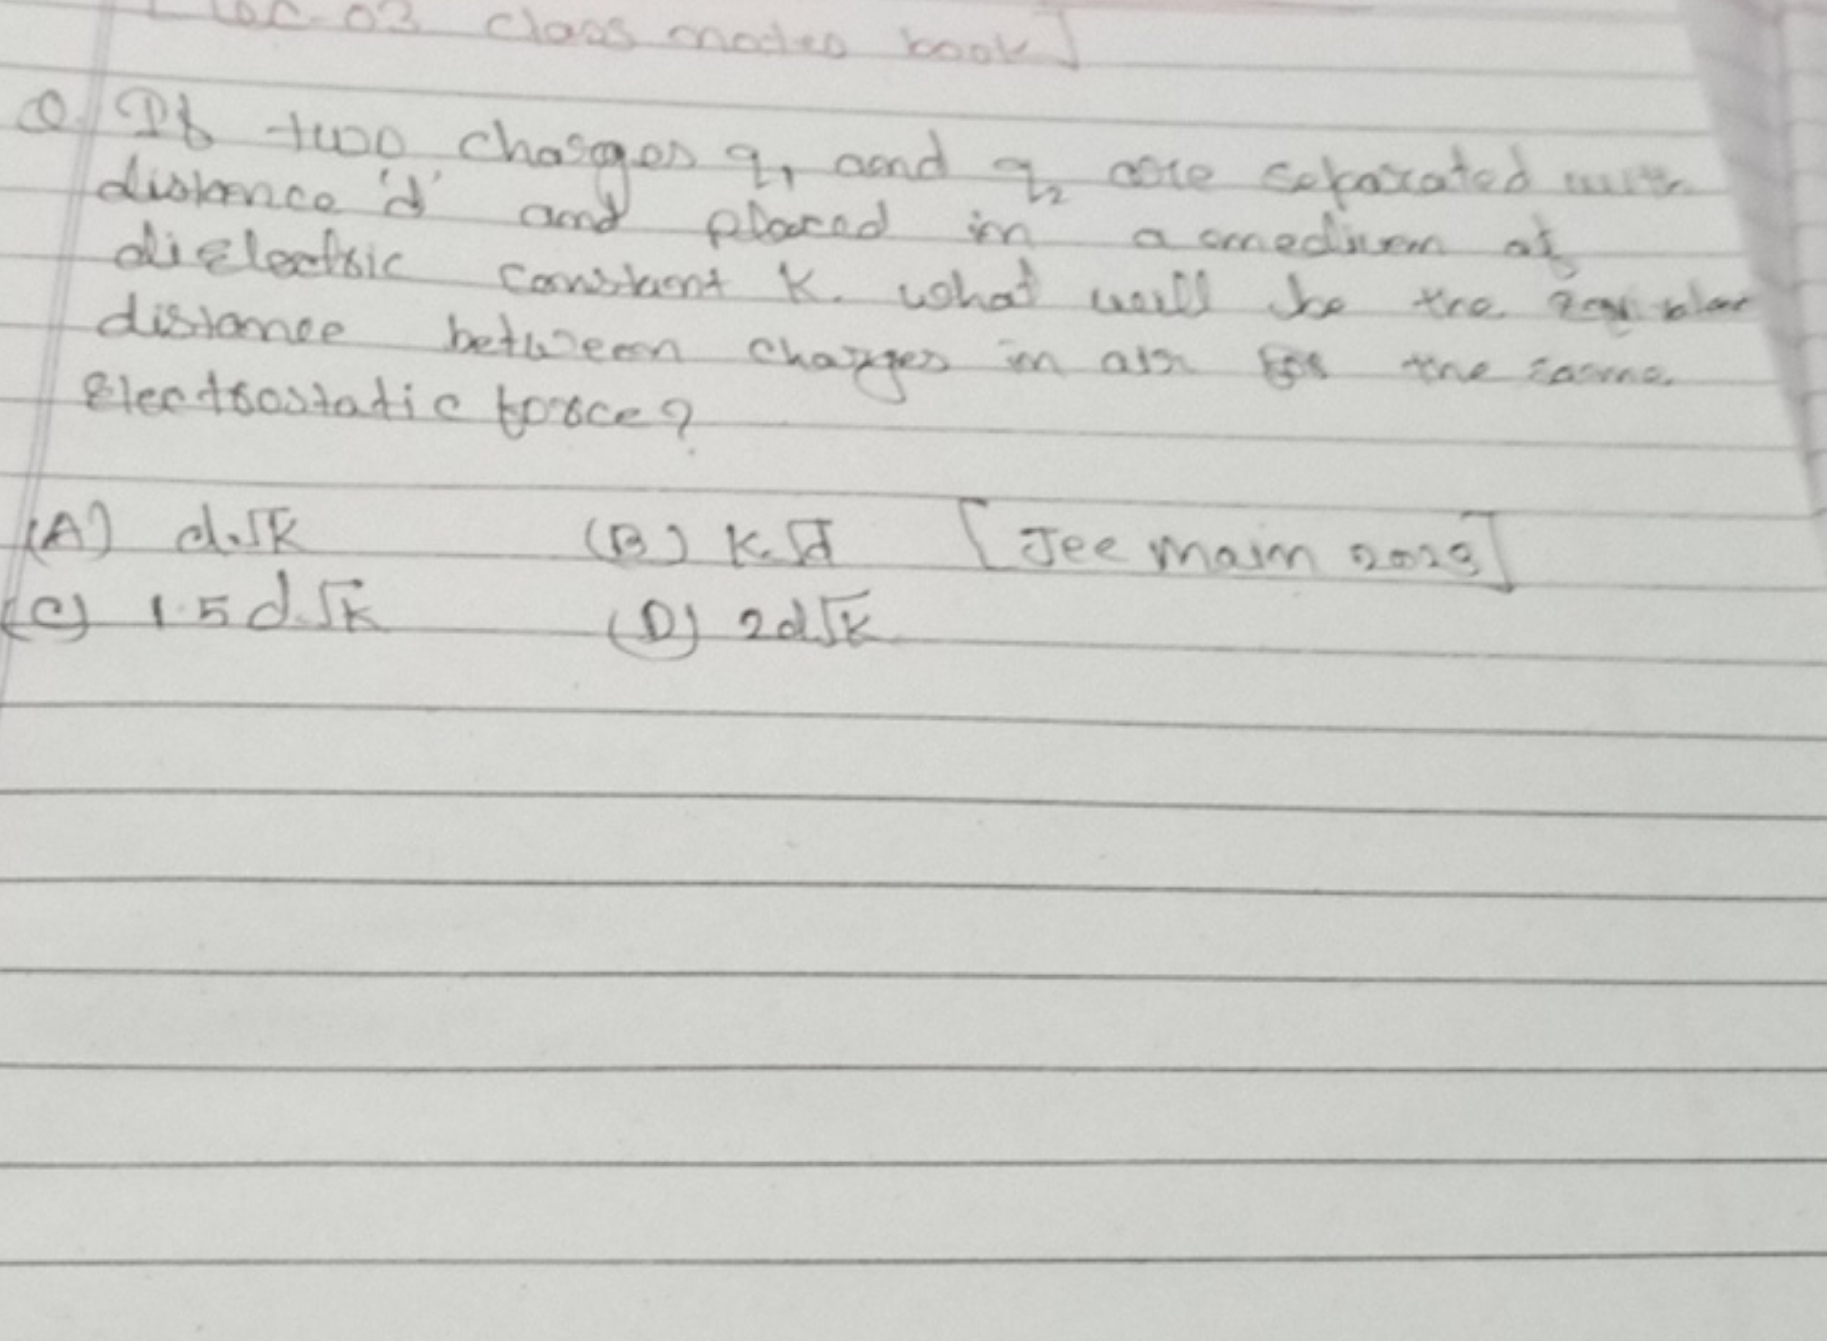 class notes book]
Q. If two charges q₁ and q₂ are separated with
distance 'd' and placed in a medium of
dielectric constant K. what will be the
distance between charges in air for the same
Electrostatic force?
(A) d√k (B) k√d [Jee main 2023]
(C) 1.5d√k (D) 2d√k